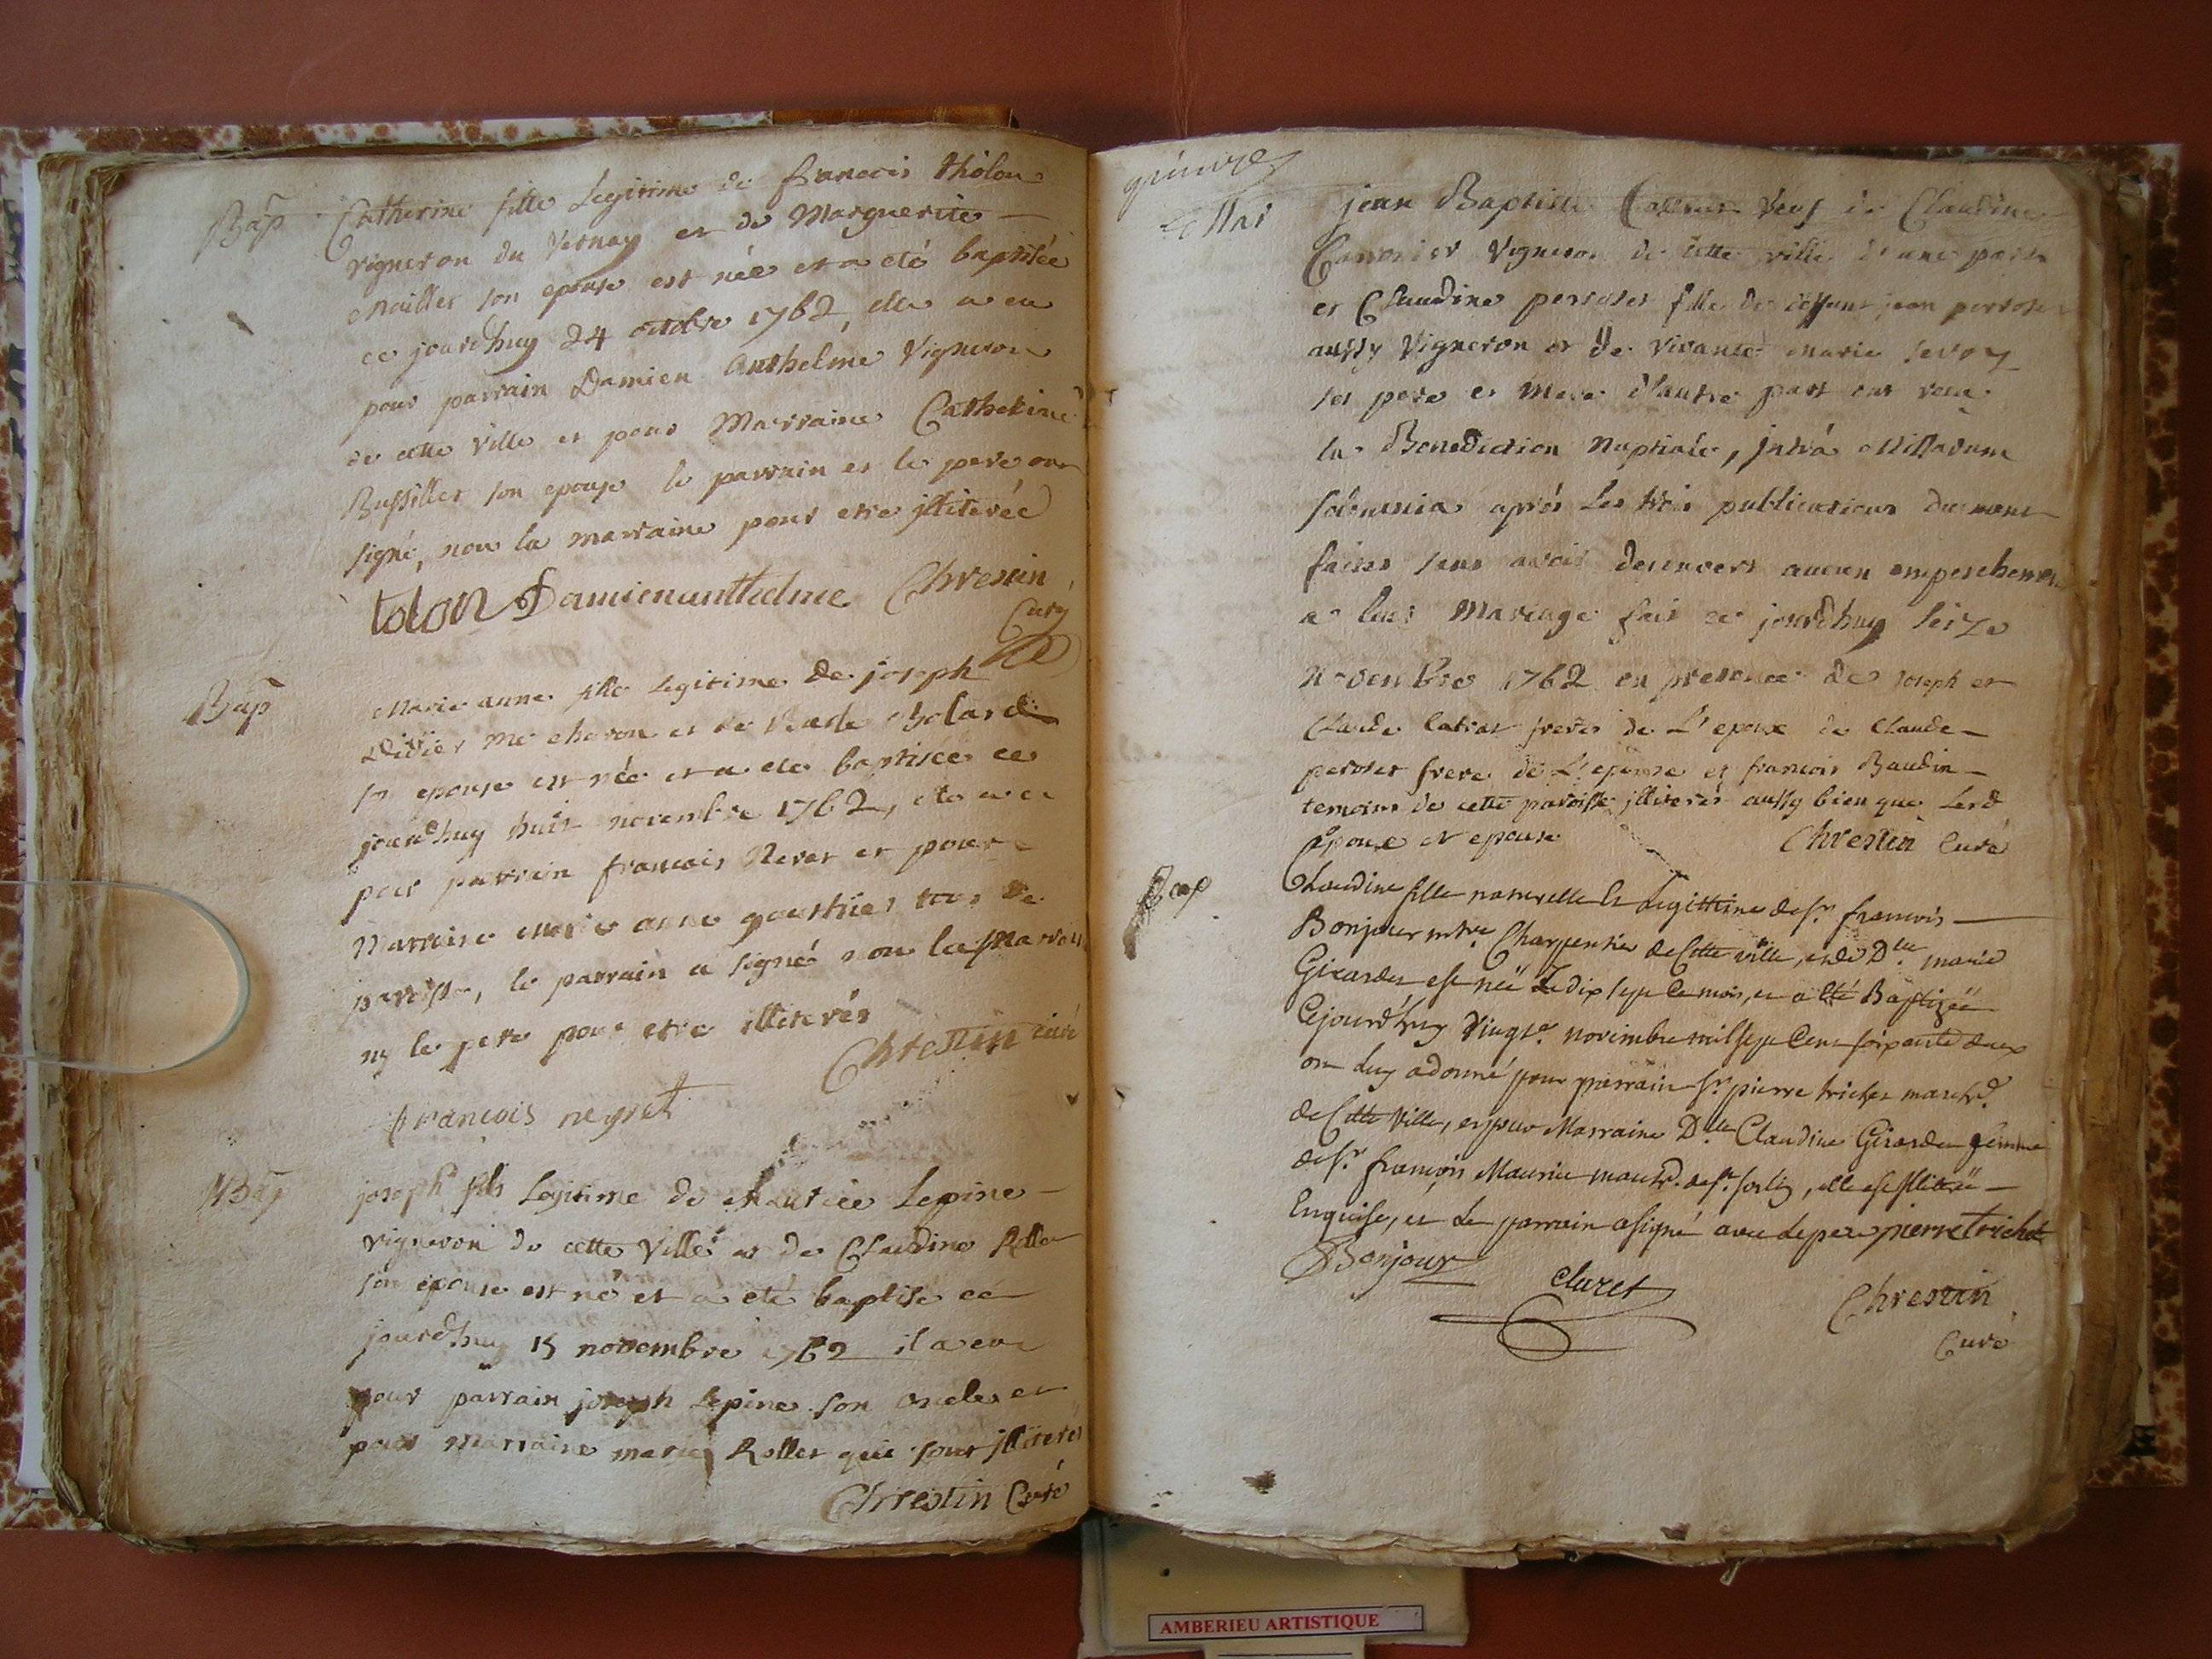 Bap
Catherine fille Legitime de francois thòlon
vigneron du Vernay et de Marguerite
Maillet son epouse est née et a eté baptisée
ce jourdhuy 24 octobre 1762, elle a eu
pour parrain Damien Anthelme Vigneron
de cette Ville et pour Marraine Catherine
Bussillet son epouse le parrain et le pere ont
signé, non la marraine pour etre jlliterée
tolon Damienanthelme Chrestin
Curé
Bap
Marie anne fille Legitime de joseph
Didier me charon et de
son epouse est née et a eté baptisée ce
jourdhuy huit novembre 1762, elle a eu
pour parrain francois Neret et pour
Marraine marie anne tous de
paroisse, le parrain a signé non la Marraine
ny le pere pour etre illiterés
Chrestin curé
francois neyret
Bap
joseph fils Legitime de Maurice Lepine
vigneron de cette Ville et de Claudine Rollet
son epouse est né et a eté baptisé ce
jourdhuy 15 novembre 1762 il a eu
pour parrain joseph Lepine son oncle et
pour Marraine marie Rollet qui sont jlliterés
Chrestin Curé
Mar
jean Baptiste Veuf de Claudine
Vigneron de cette ville d'une part
et Claudine perroset fille de deffunt jean perroset
aussy Vigneron et de vivante marie
ses pere et mere d'autre part ont recu
la Benediction Nuptiale, jntrá Missarum
solemnia aprés les trois publications duement
faites sans avoir decouvert aucun empeschement
a leur Mariage fait ce jourdhuy seize
Novembre 1762 en presence de joseph et
Claude freres de L'epoux de Claude
peroset frere de L'epouse et francois Baudin
temoins de cette paroisse jlliterés aussy bien que Lesd
epoux et epouse Chrestin Curé
Bap
Claudine fille naturelle et Legittime de sr. francois
Bonjour mtre Charpentier de Cette ville, et de Dlle marie
Girardet est née Le dix sept Ce mois, et a Eté Baptizée
Cejourd'huy Vingt. novembre mil sept Cent soixante deux
on Luy a donné pour parrain sr. pierre trichet marchd.
de Cette Ville, et pour Marraine Dlle Claudine Girardet femme
de sr. francois Maurice marchd. de st. sorlin, elle est jllitrée
Enquise, et Le parrain a signé avec Le pere pierre trichet
Bonjour
Claret
Chrestin
Curé
AMBERIEU ARTISTIQUE